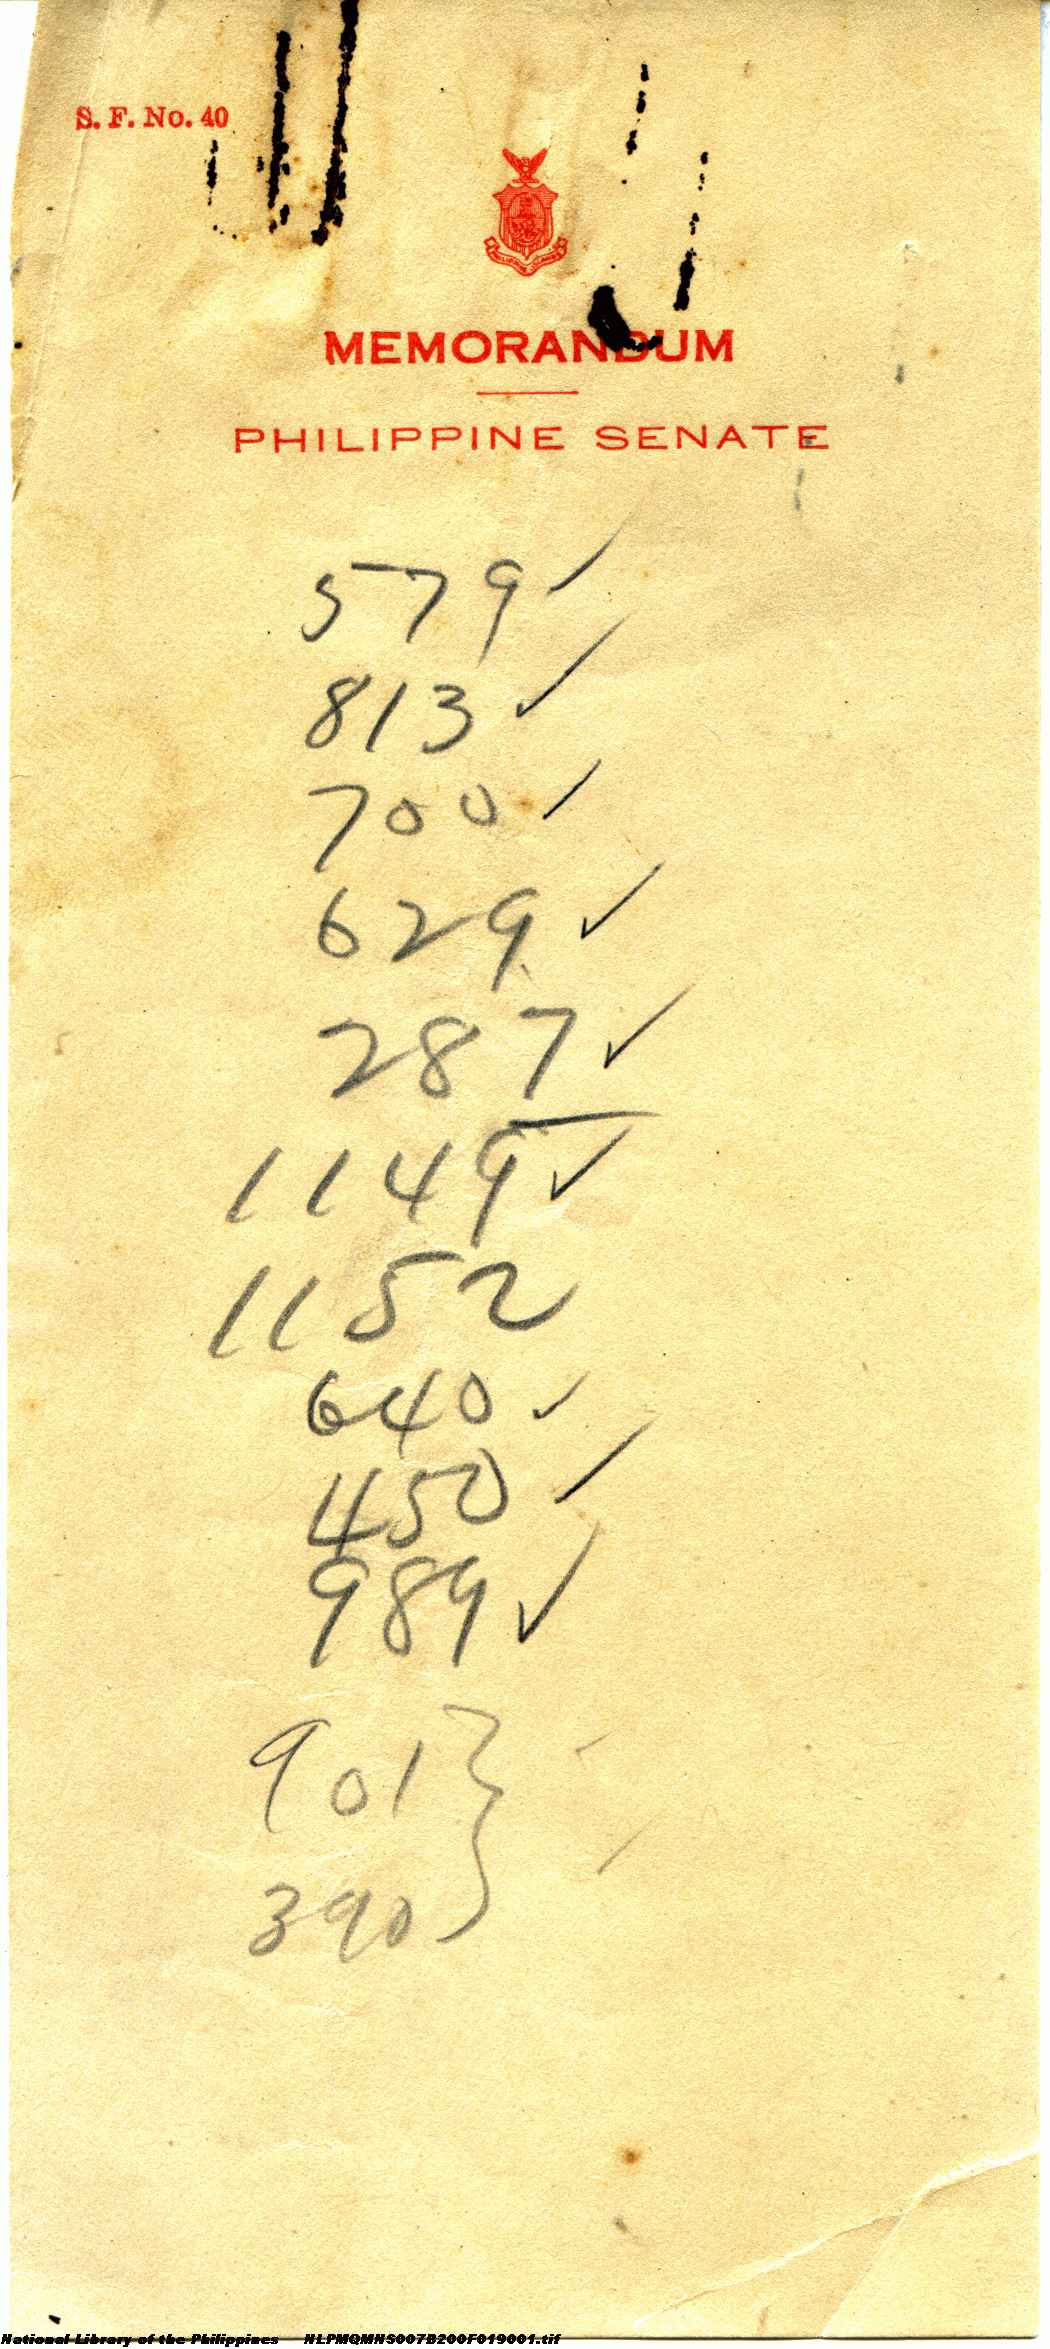 S. F. No. 40
PHILIPPINE ISLANDS
MEMORANDUM
PHILIPPINE SENATE
579 ✓
813 ✓
700 ✓
629 ✓
287 ✓
1149 ✓
1152
640 ✓
450 ✓
989 ✓
901 }
390
National Library of the Philippines NLPMQMNS007B200F019001.tif